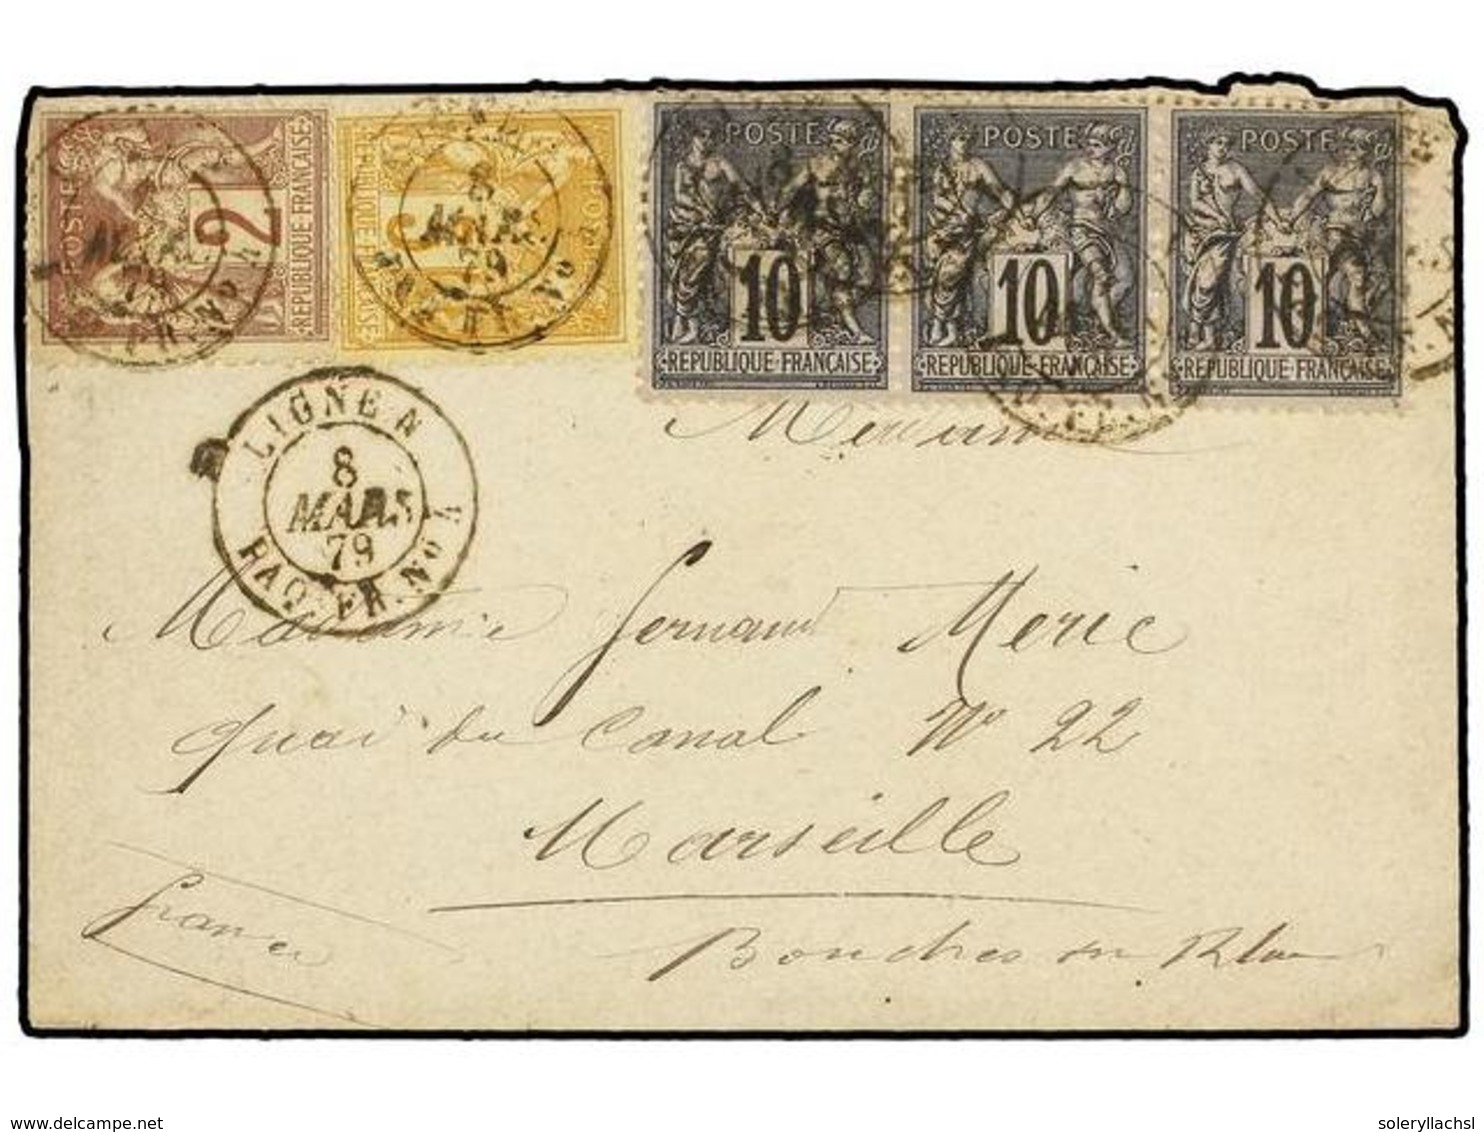 POSTES 2 RÉPUBLIQUE FRANÇAISE
8
MARS
79
POSTE
10
RÉPUBLIQUE·FRANÇAISE
POSTE
10
RÉPUBLIQUE·FRANÇAISE
POSTE
10
RÉPUBLIQUE·FRANÇAISE
LIGNE N
8
MARS
79
PAQ. FR. No 4
Madame Fernand Meric
Quai du Canal No 22
Marseille
France
Bouches du Rhône
www.delcampe.net
soleryllachsl